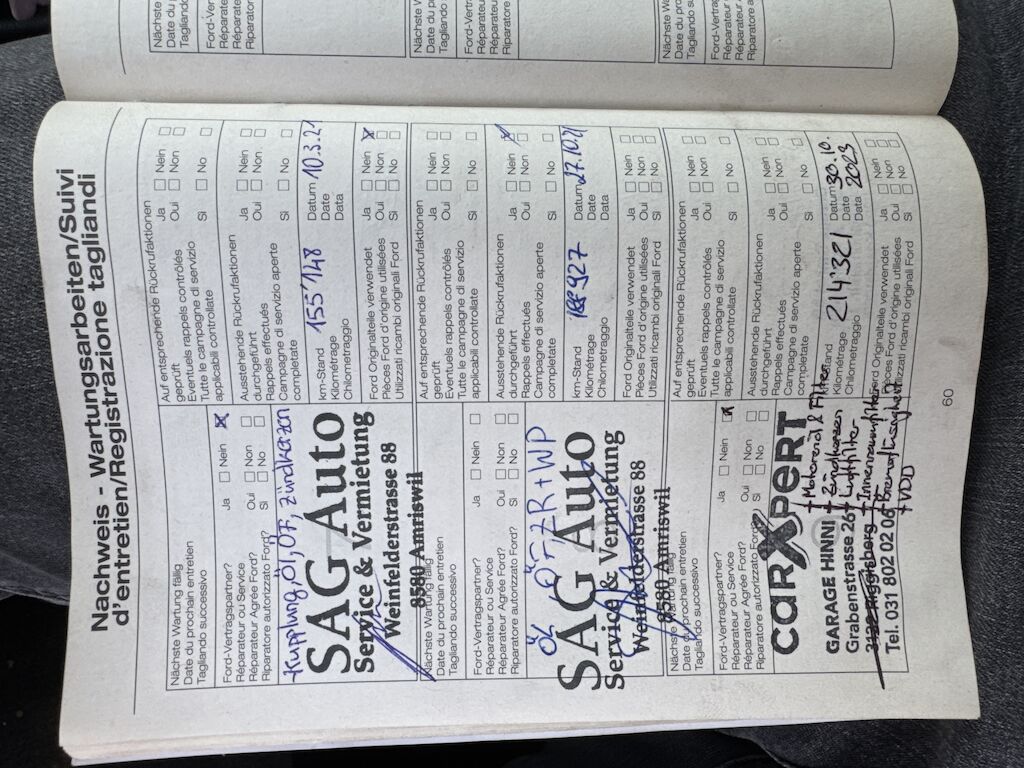 Nachweis - Wartungsarbeiten/Suivi
d'entretien/Registrazione tagliandi
Nächste Wartung fällig
Date du prochain entretien
Tagliando successivo
Ford-Vertragspartner? Ja Nein
Réparateur ou Service
Réparateur Agréé Ford? Oui Non
Riparatore autorizzato Ford? Si No
Kupplung, Öl, ÖF, Zündkerzen
SAG Auto
Service & Vermietung
Weinfelderstrasse 88
8580 Amriswil
Auf entsprechende Rückrufaktionen
geprüft Ja Nein
Eventuels rappels contrôlés Oui Non
Tutte le campagne di servizio
applicabili controllate Si No
Ausstehende Rückrufaktionen
durchgeführt Ja Nein
Rappels effectués Oui Non
Campagne di servizio aperte
completate Si No
km-Stand 155'148 Datum 10.3.21
Kilométrage Date
Chilometraggio Data
Ford Originalteile verwendet Ja Nein
Pièces Ford d'origine utilisées Oui Non
Utilizzati ricambi originali Ford Si No
Nächste Wartung fällig
Date du prochain entretien
Tagliando successivo
Ford-Vertragspartner? Ja Nein
Réparateur ou Service
Réparateur Agréé Ford? Oui Non
Riparatore autorizzato Ford? Si No
ÖL ÖF, ZR+WP
SAG Auto
Service & Vermietung
Weinfelderstrasse 88
8580 Amriswil
Auf entsprechende Rückrufaktionen
geprüft Ja Nein
Eventuels rappels contrôlés Oui Non
Tutte le campagne di servizio
applicabili controllate Si No
Ausstehende Rückrufaktionen
durchgeführt Ja Nein
Rappels effectués Oui Non
Campagne di servizio aperte
completate Si No
km-Stand 927 Datum 27.10.21
Kilométrage Date
Chilometraggio Data
Ford Originalteile verwendet Ja Nein
Pièces Ford d'origine utilisées Oui Non
Utilizzati ricambi originali Ford Si No
Nächste Wartung fällig
Date du prochain entretien
Tagliando successivo
Ford-Vertragspartner? Ja Nein
Réparateur ou Service
Réparateur Agréé Ford? Oui Non
Riparatore autorizzato Ford? Si No
CARXPERT
GARAGE HINNI
Grabenstrasse 26
Tel. 031 802 02 06
+ Motorenöl & Filter
+ Zündkerzen
+ Luftfilter
+ Innenraumfilter
+ Bremsflüssigkeit
+ VDD
Auf entsprechende Rückrufaktionen
geprüft Ja Nein
Eventuels rappels contrôlés Oui Non
Tutte le campagne di servizio
applicabili controllate Si No
Ausstehende Rückrufaktionen
durchgeführt Ja Nein
Rappels effectués Oui Non
Campagne di servizio aperte
completate Si No
km-Stand 214'321 Datum 30.10.
Kilométrage Date 2023
Chilometraggio Data
Ford Originalteile verwendet Ja Nein
Pièces Ford d'origine utilisées Oui Non
Utilizzati ricambi originali Ford Si No
60